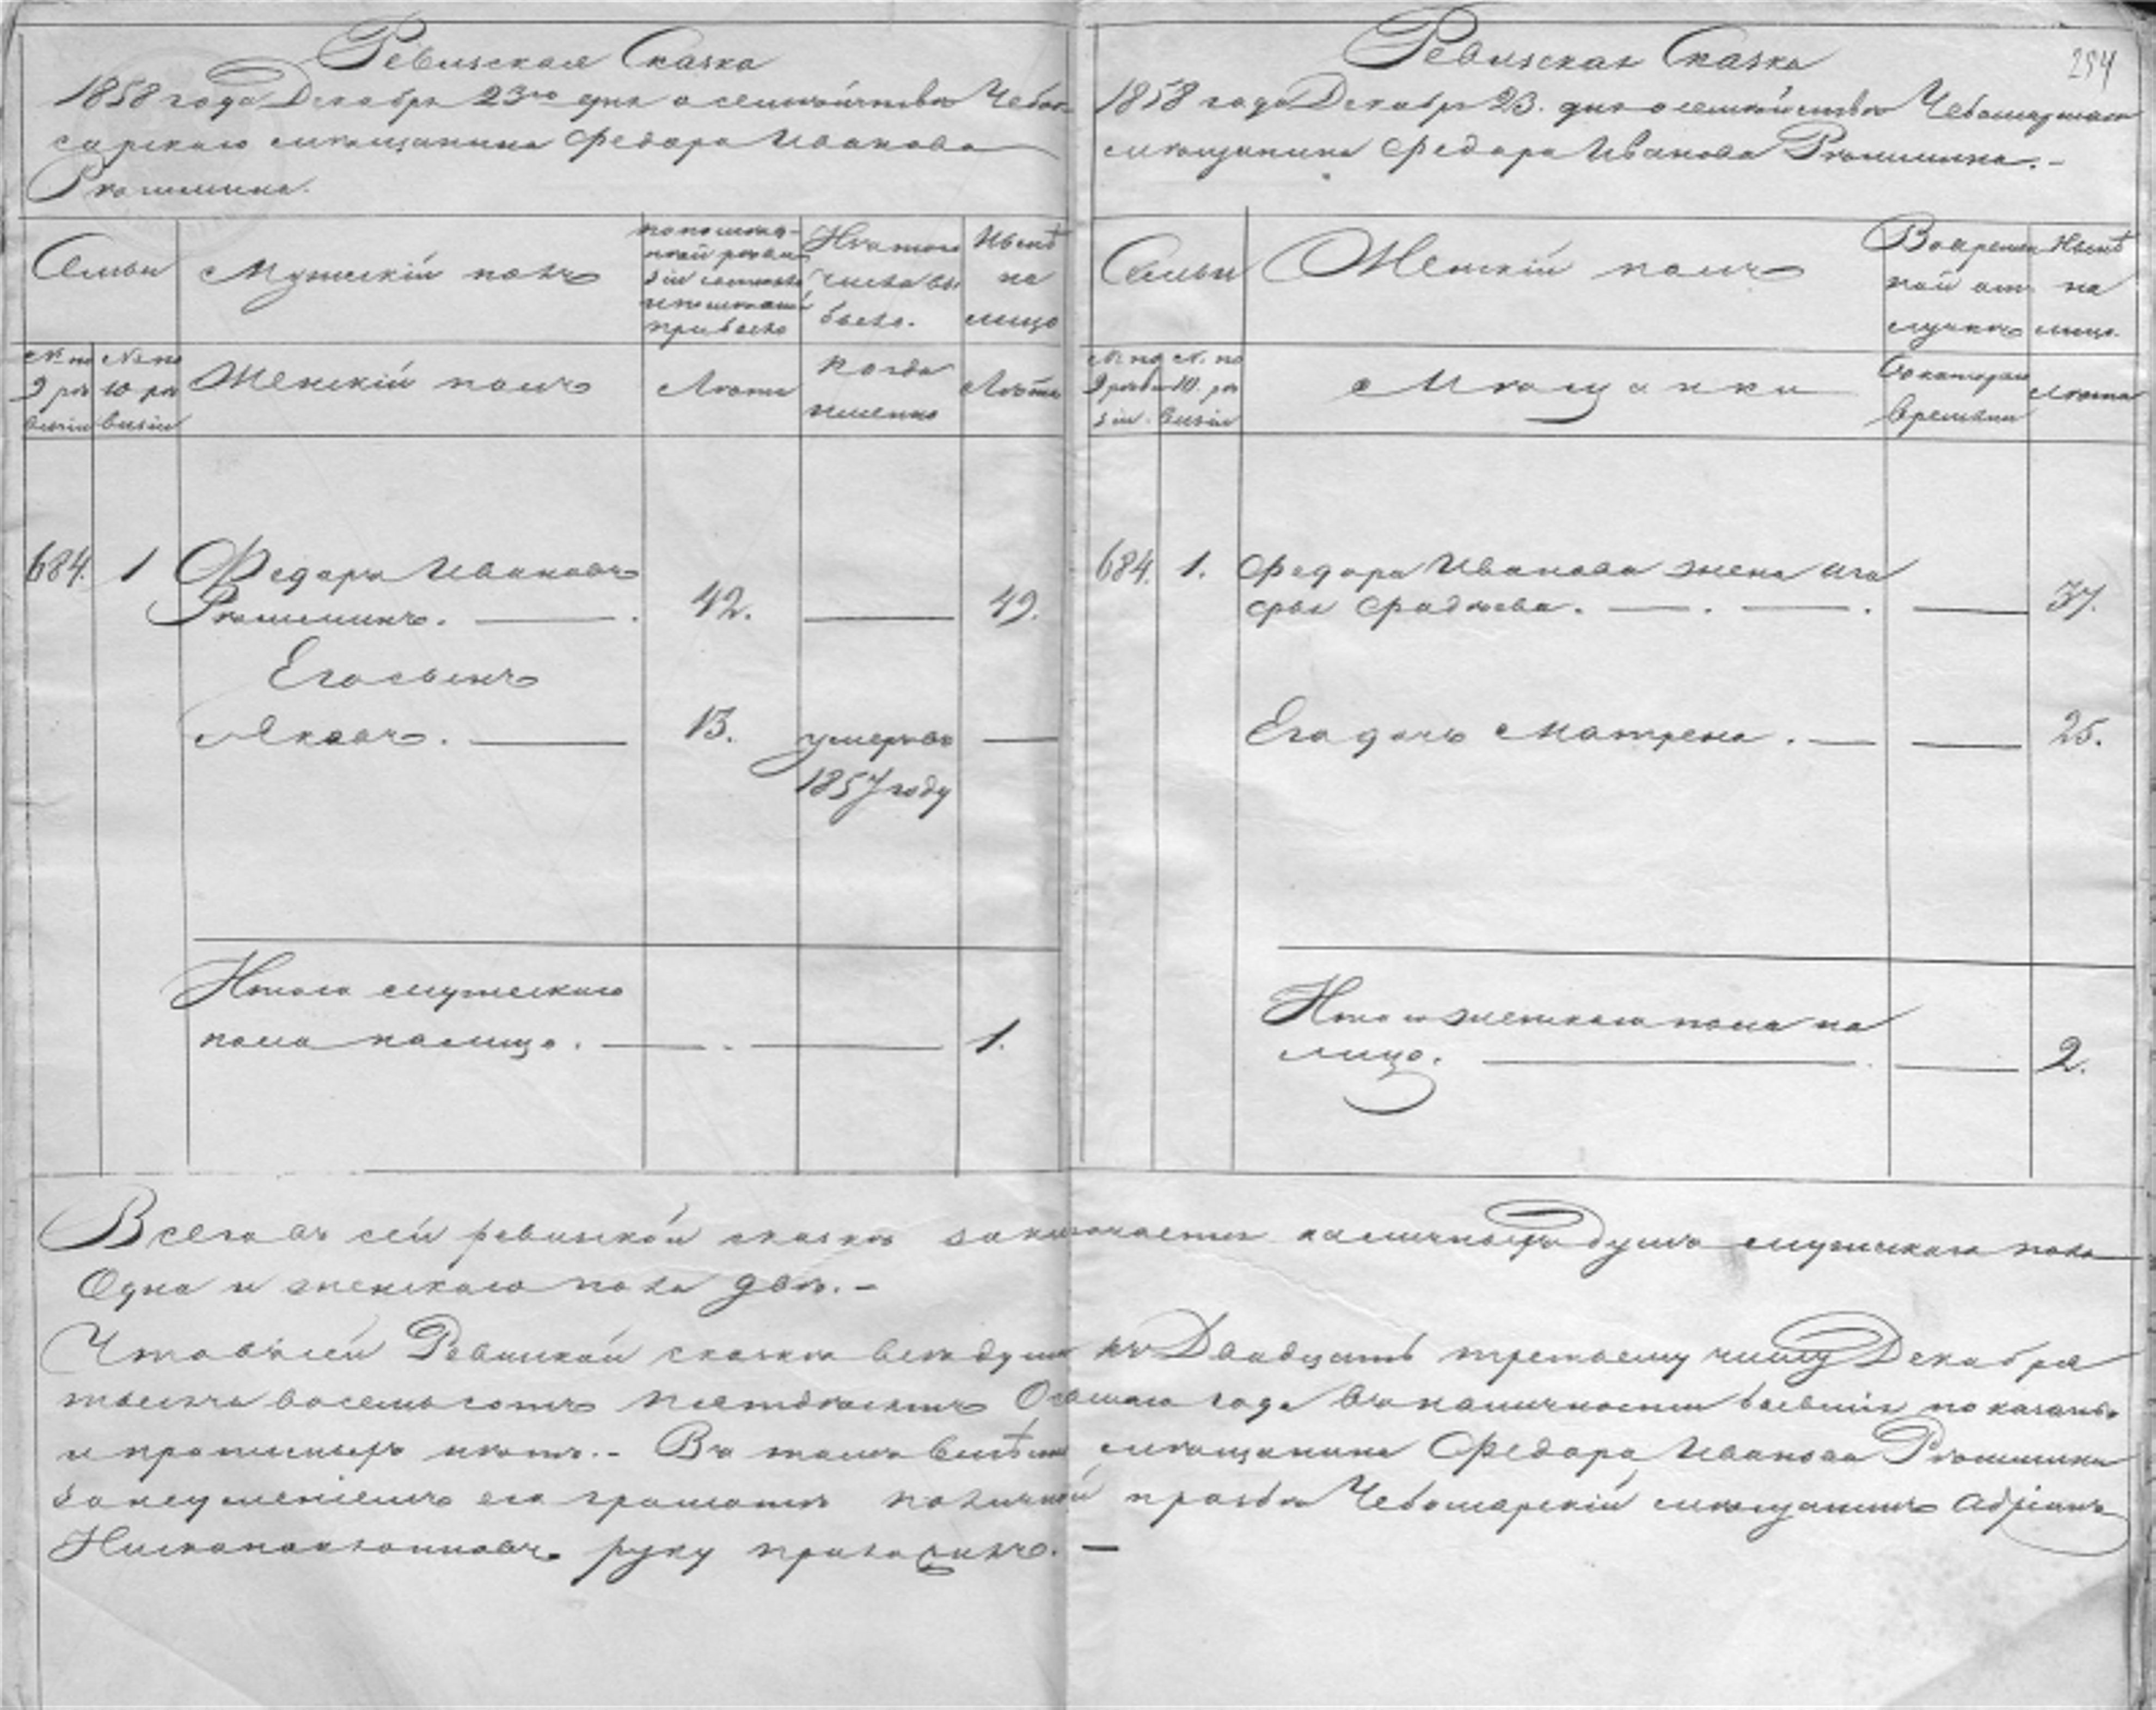 Ревизская Сказка
1858 года Декабря 23го дня о семействе Чебок
сарскаго мещанина Федора Иванова
Семьи
Мужескій полъ
По послед-
ней реви-
зіи состояло
и после того
прибыло
Изъ того
числа вы
было.
Нынѣ
на
лицо
№ по
9 ре
визіи
№ по
10 ре
визіи
Женскій полъ
Лета
Когда
именно
Лета
684. 1 Федоръ Ивановъ
42. 49.
Его сынъ
Яковъ. 13. умеръ въ
1857 году
Итого мужескаго
пола на лицо. 1.
Ревизская Сказка
254
1858 года Декабря 23. дня о семействе Чебоксарскаго
мещанина Федора Иванова
Семьи
Женскій полъ
Во времен
ной от
лучке
Ныне
на
лицо.
№ по
9 реви
зіи.
№. по
10. ре
визіи
Мещанки
Съ котораго
времени
Лета
684. 1. Федора Иванова жена
37.
Его дочь Матрена. 25.
Итого женскаго пола на
лицо. 2.
Всего въ сей ревизской сказке заключается наличныхъ душъ мужескаго пола
Одна и женскаго пола две. -
Что въ сей Ревизской сказке все души къ Двадцать третьему числу Декабря
тысяча восемьсотъ пятдесятъ Осьмаго года въ наличности бывшія показаны
и прописныхъ нетъ. - Въ томъ вместо мещанина Федора Иванова
за неуменіемъ его грамоте по личной прозьбе Чебоксарскій мещанинъ Адріанъ
руку приложилъ. -